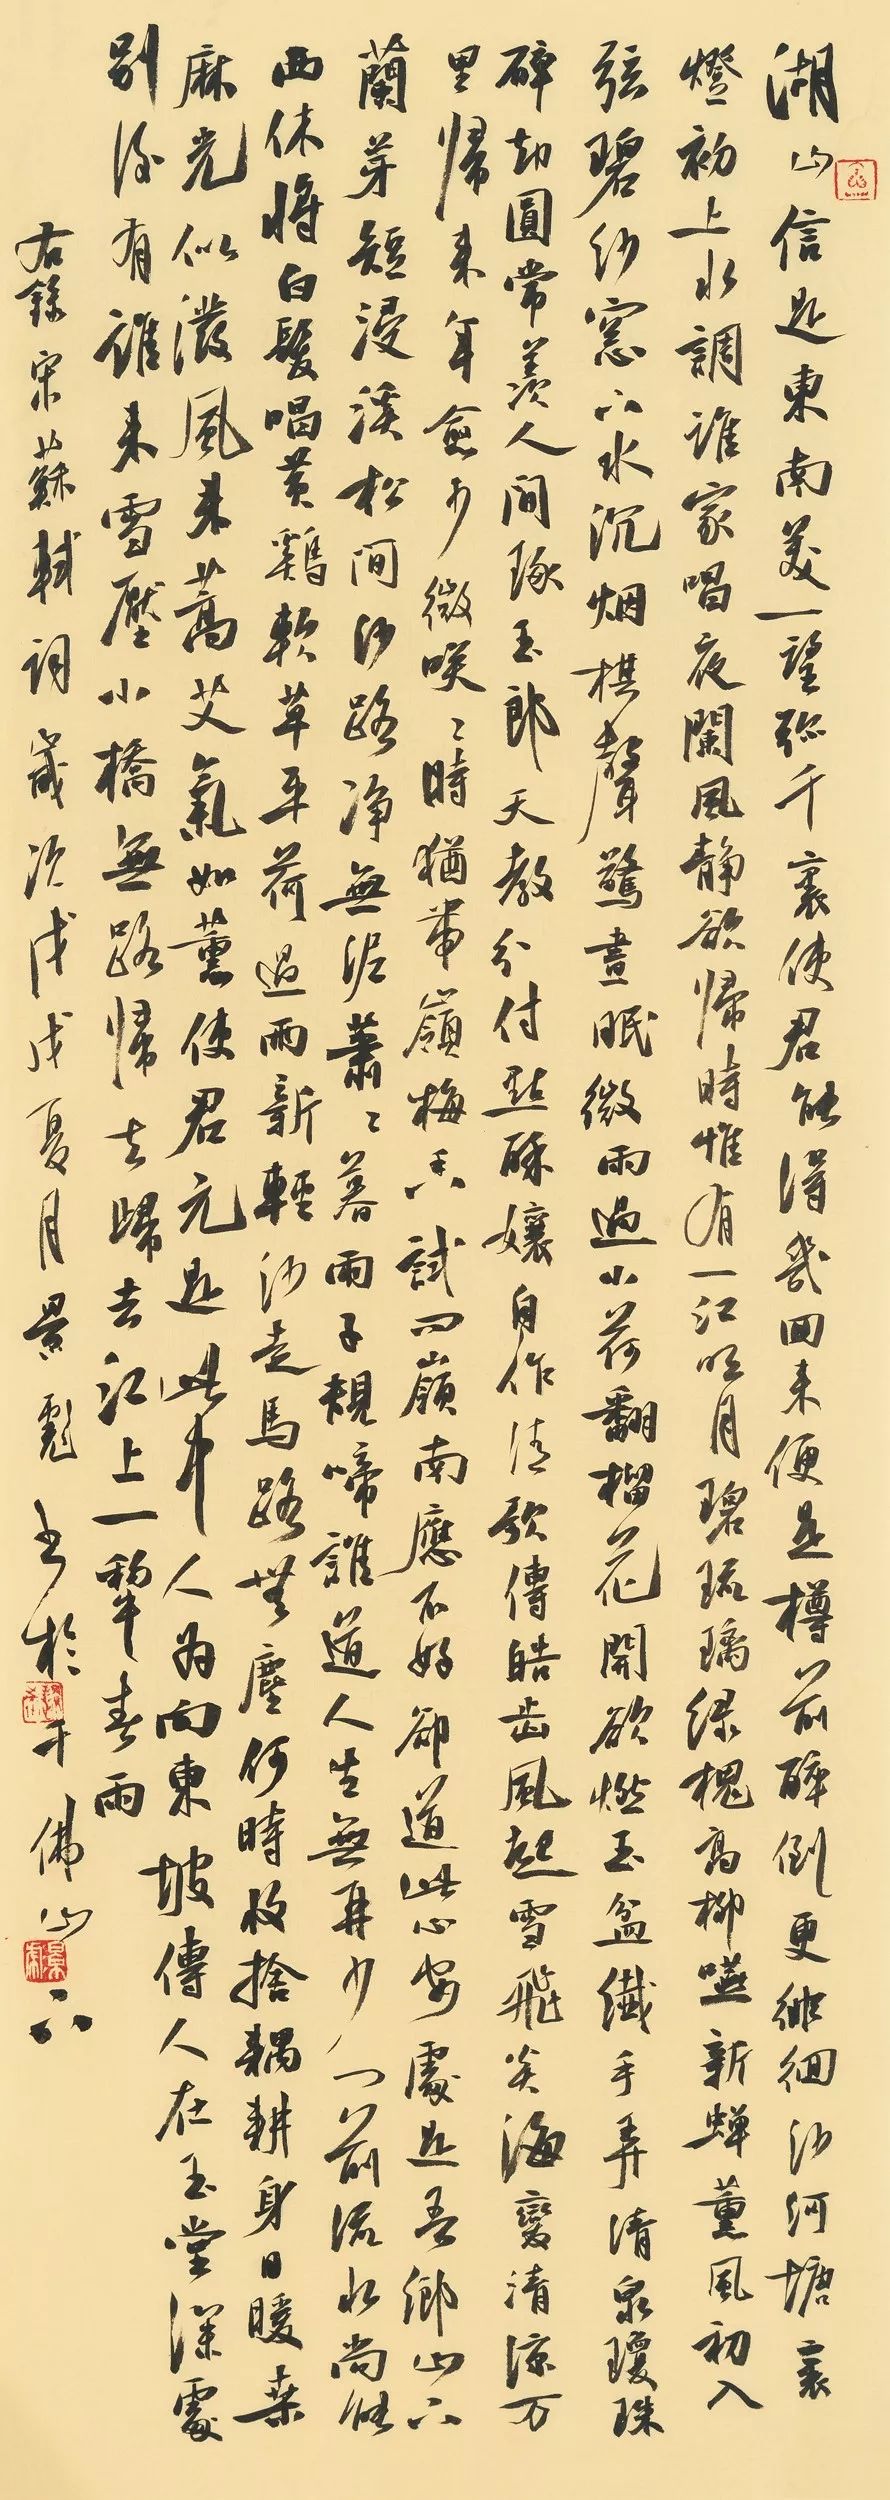 湖山信是東南美一望弥千裏使君能得幾回來便是樽前醉倒更徘徊沙河塘裏
燈初上水調誰家唱夜闌風静欲歸時惟有一江明月碧琉璃绿槐高柳咽新蝉薰風初入
弦碧纱窓下水沉烟棋聲驚晝眠微雨過小荷翻榴花開欲燃玉盆纖手弄清泉瓊珠
碎却圓常羨人間琢玉郎天教分付點酥孃自作清歌傳皓齒風起雪飛炎海變清凉万
里歸來年愈少微笑〻時猶带嶺梅香試问嶺南應不好卻道此心安處是吾鄉山下
蘭芽短浸溪松间沙路净無泥蕭〻暮雨子規啼誰道人生無再少门前流水尚能
西休將白髮唱黄鷄軟草平荷過雨新輕沙走馬路無塵何時收捨耦耕身日暖桑
麻光似潑風來蒿艾氣如薰使君元是此中人為向東坡傳人在玉堂深處
别後有誰來雪壓小橋無路歸去歸去江上一犁春雨
右錄宋蘇軾詞歲次戊戌夏月景彪书於千佛山下